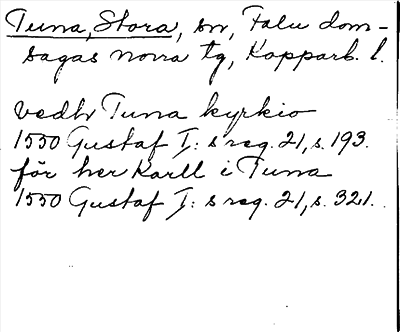 Tuna, Stora, sn, Falu dom-
sagas norra tg, Kopparb. l.
vedh Tuna kyrkio
1550 Gustaf I: s reg. 21, s. 193.
för her Karll i Tuna
1550 Gustaf I: s reg. 21, s. 321.